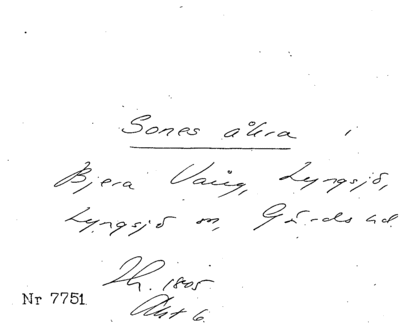 Sones åkra i
Bjera Vång, Lyngsjö,
Lyngsjö sn, Gärds hd.
Sk. 1805
Akt 6.
Nr 7751